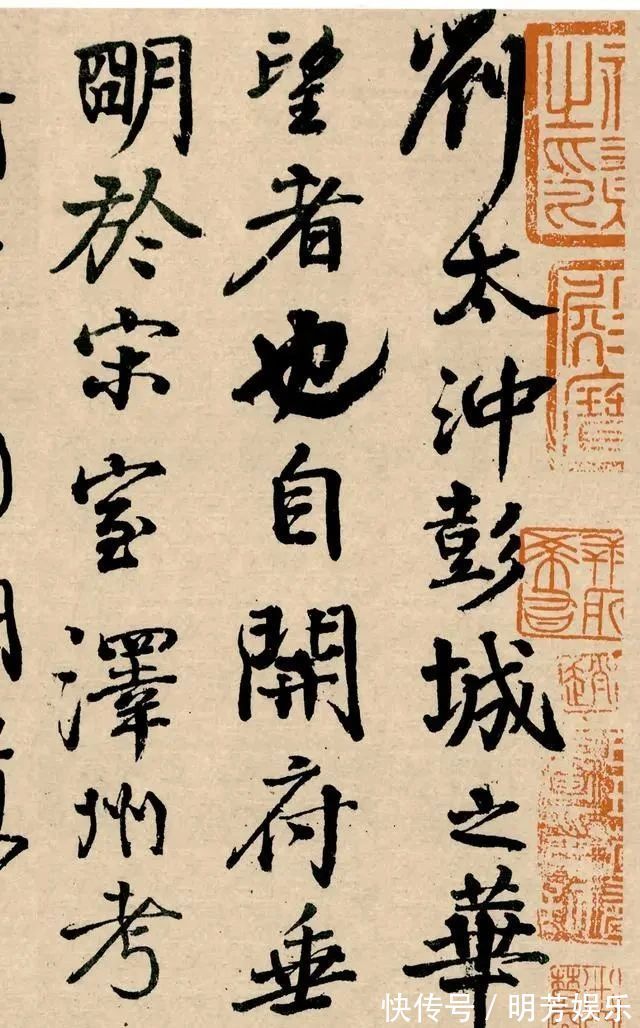 劉太沖彭城之華
望者也自開府垂
朙於宋室澤州考
快传号 / 明芳娱乐